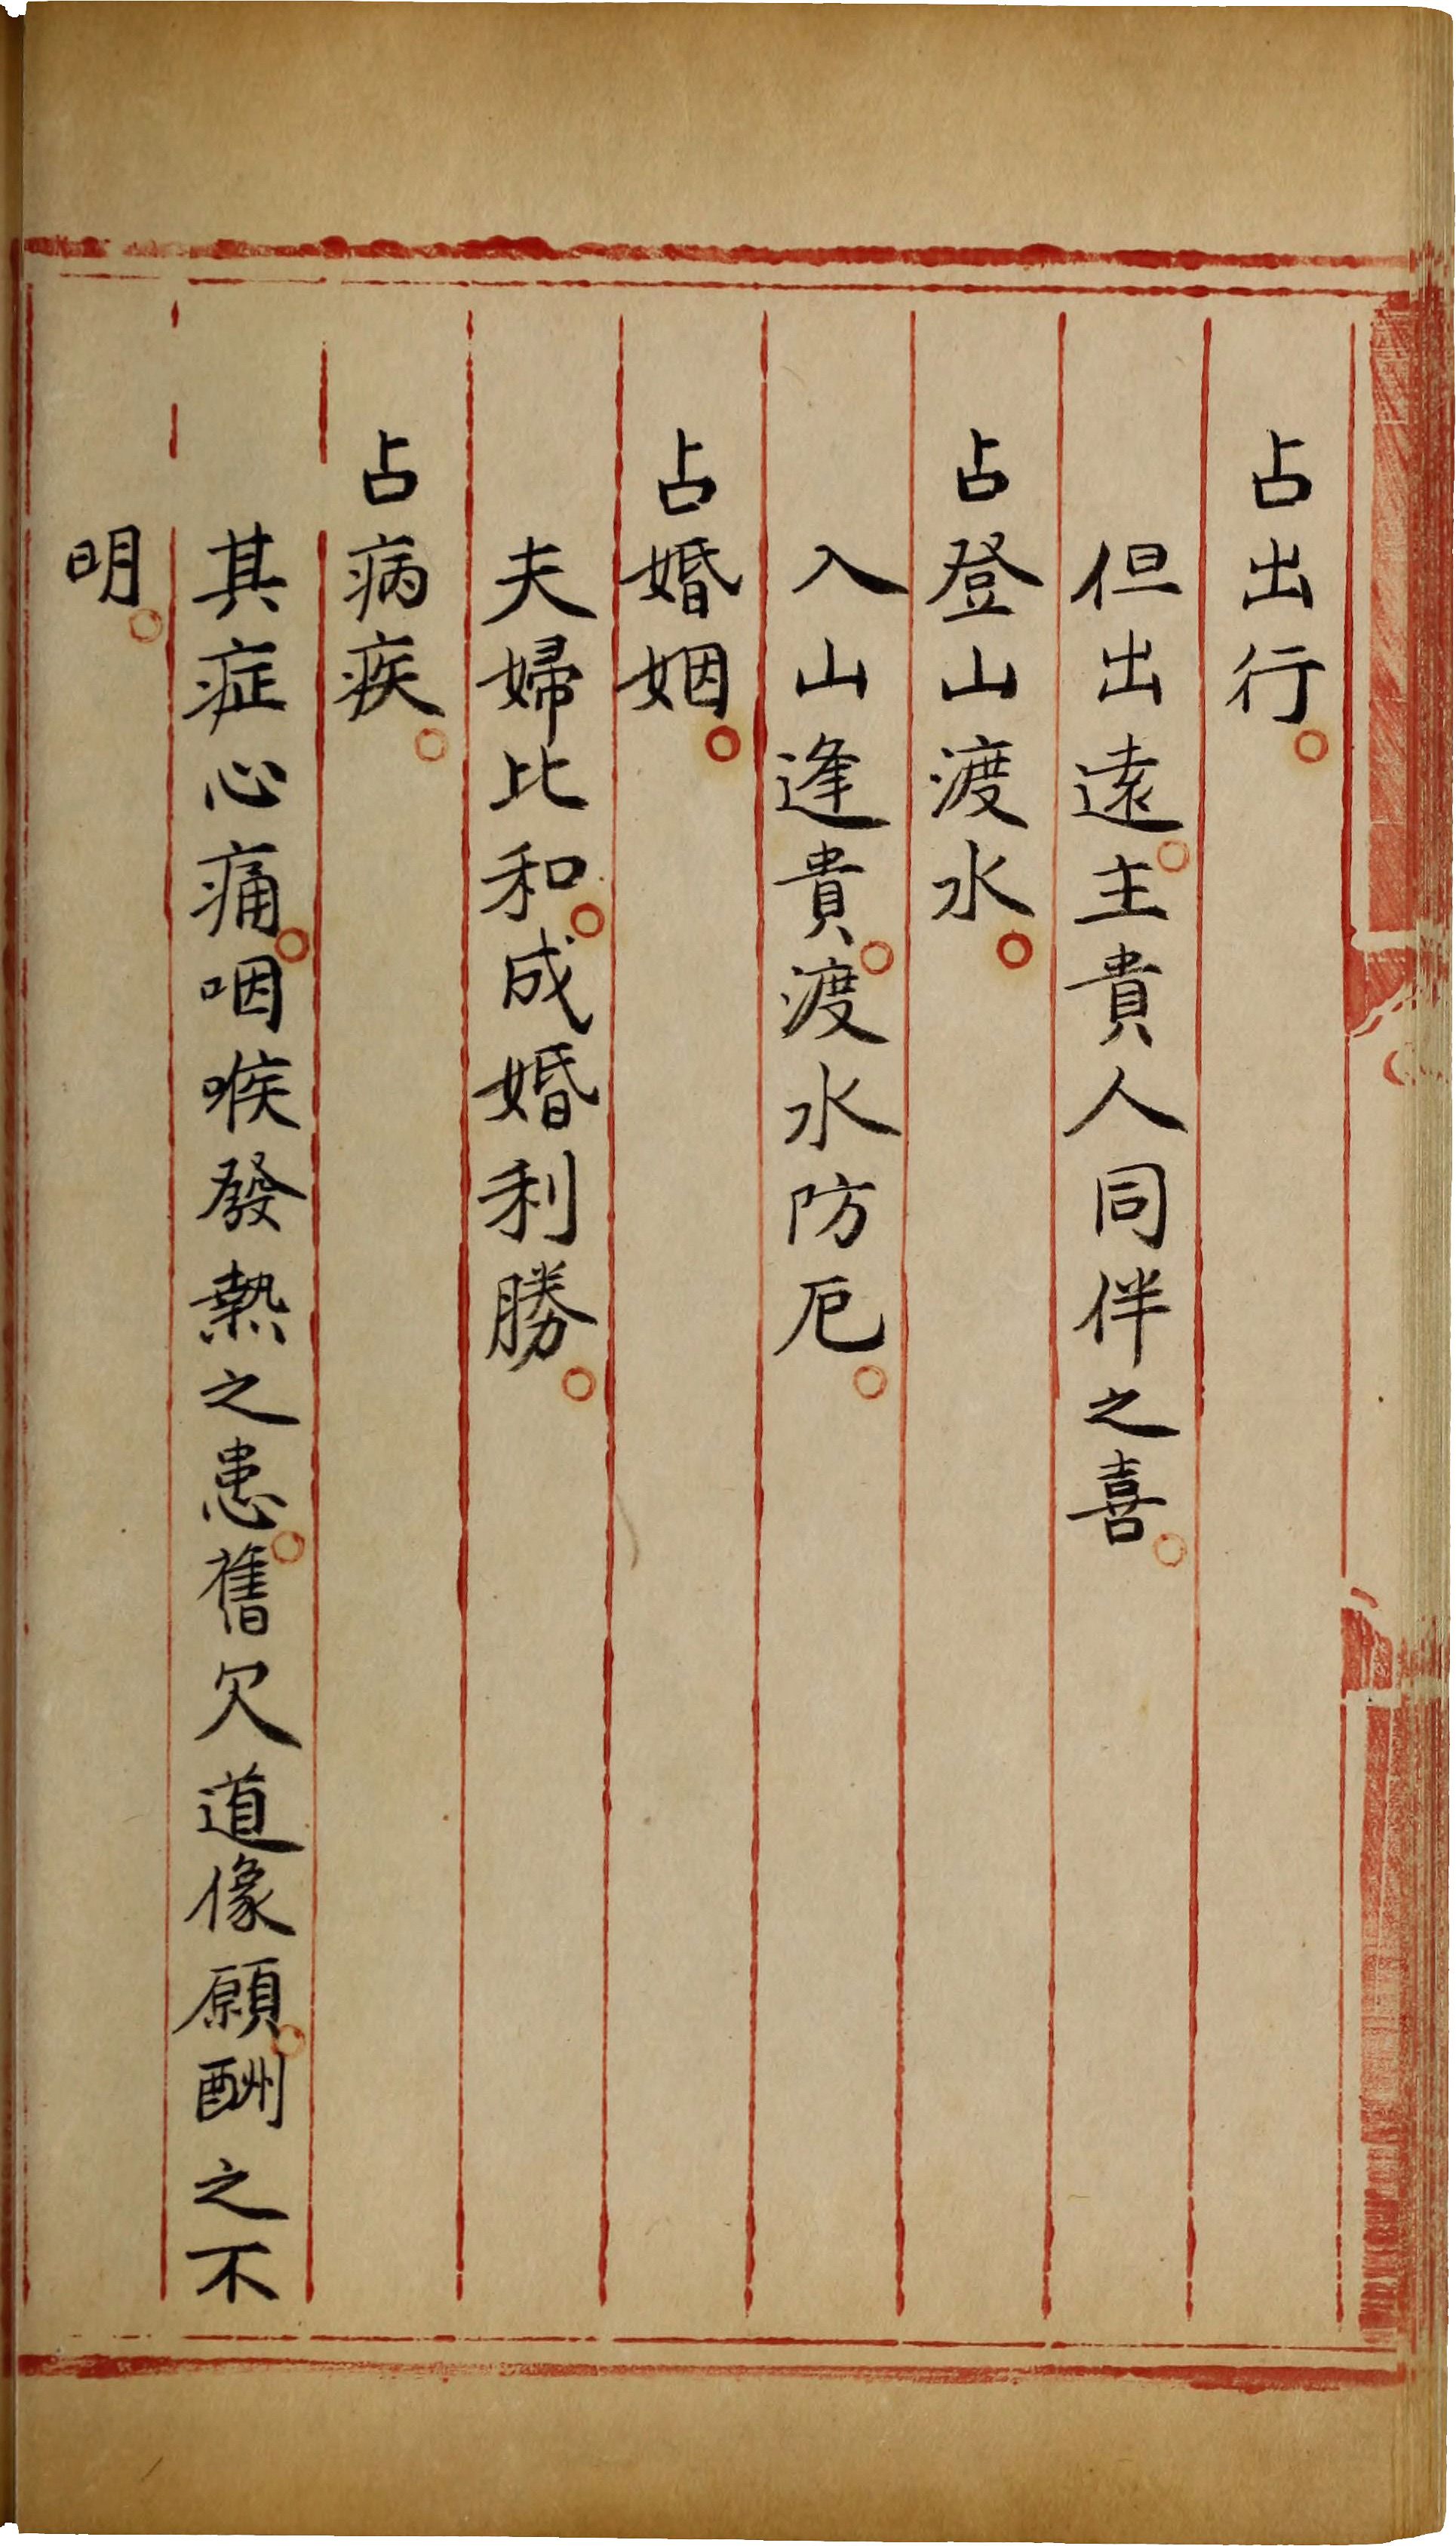 占出行。
但出遠。主貴人同伴之喜。
占登山渡水。
入山逢貴。渡水防厄。
占婚姻。
夫婦比和。成婚利勝。
占病疾。
其症心痛。咽喉發熱之患。舊欠道像願。酬之不
明。